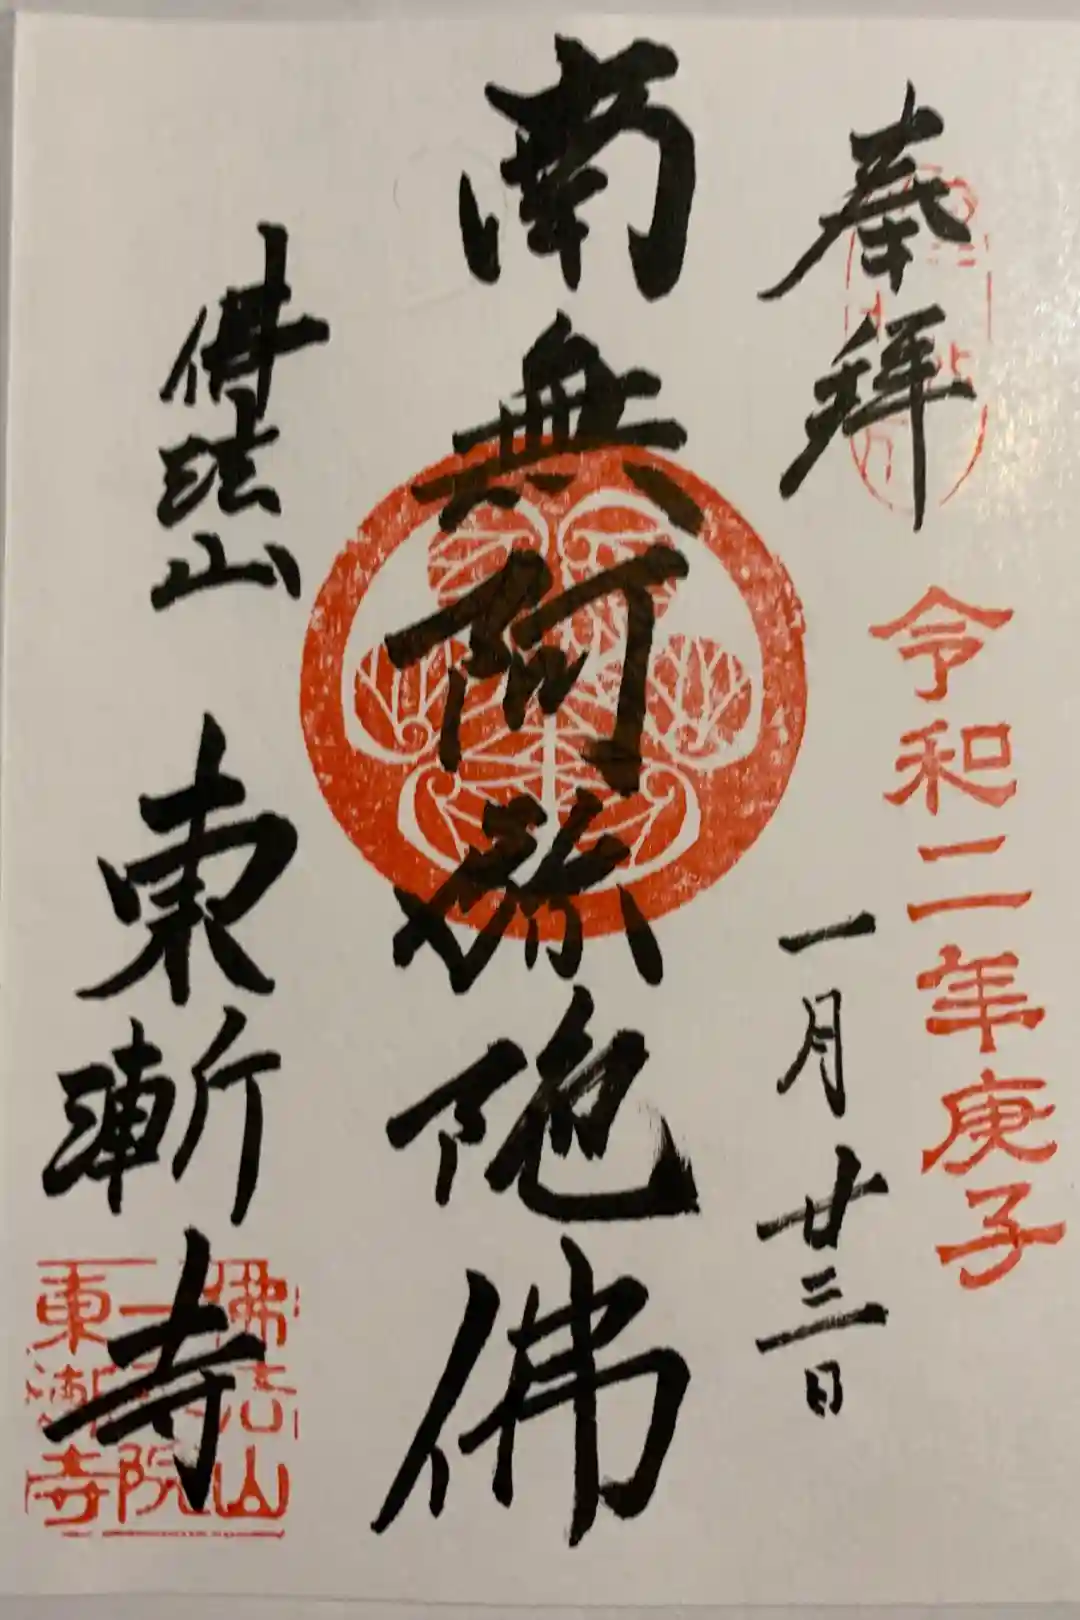 奉拝
令和二年庚子
一月廿三日
南無阿弥陀佛
佛法山 東漸寺
佛法山
一 院
東漸寺